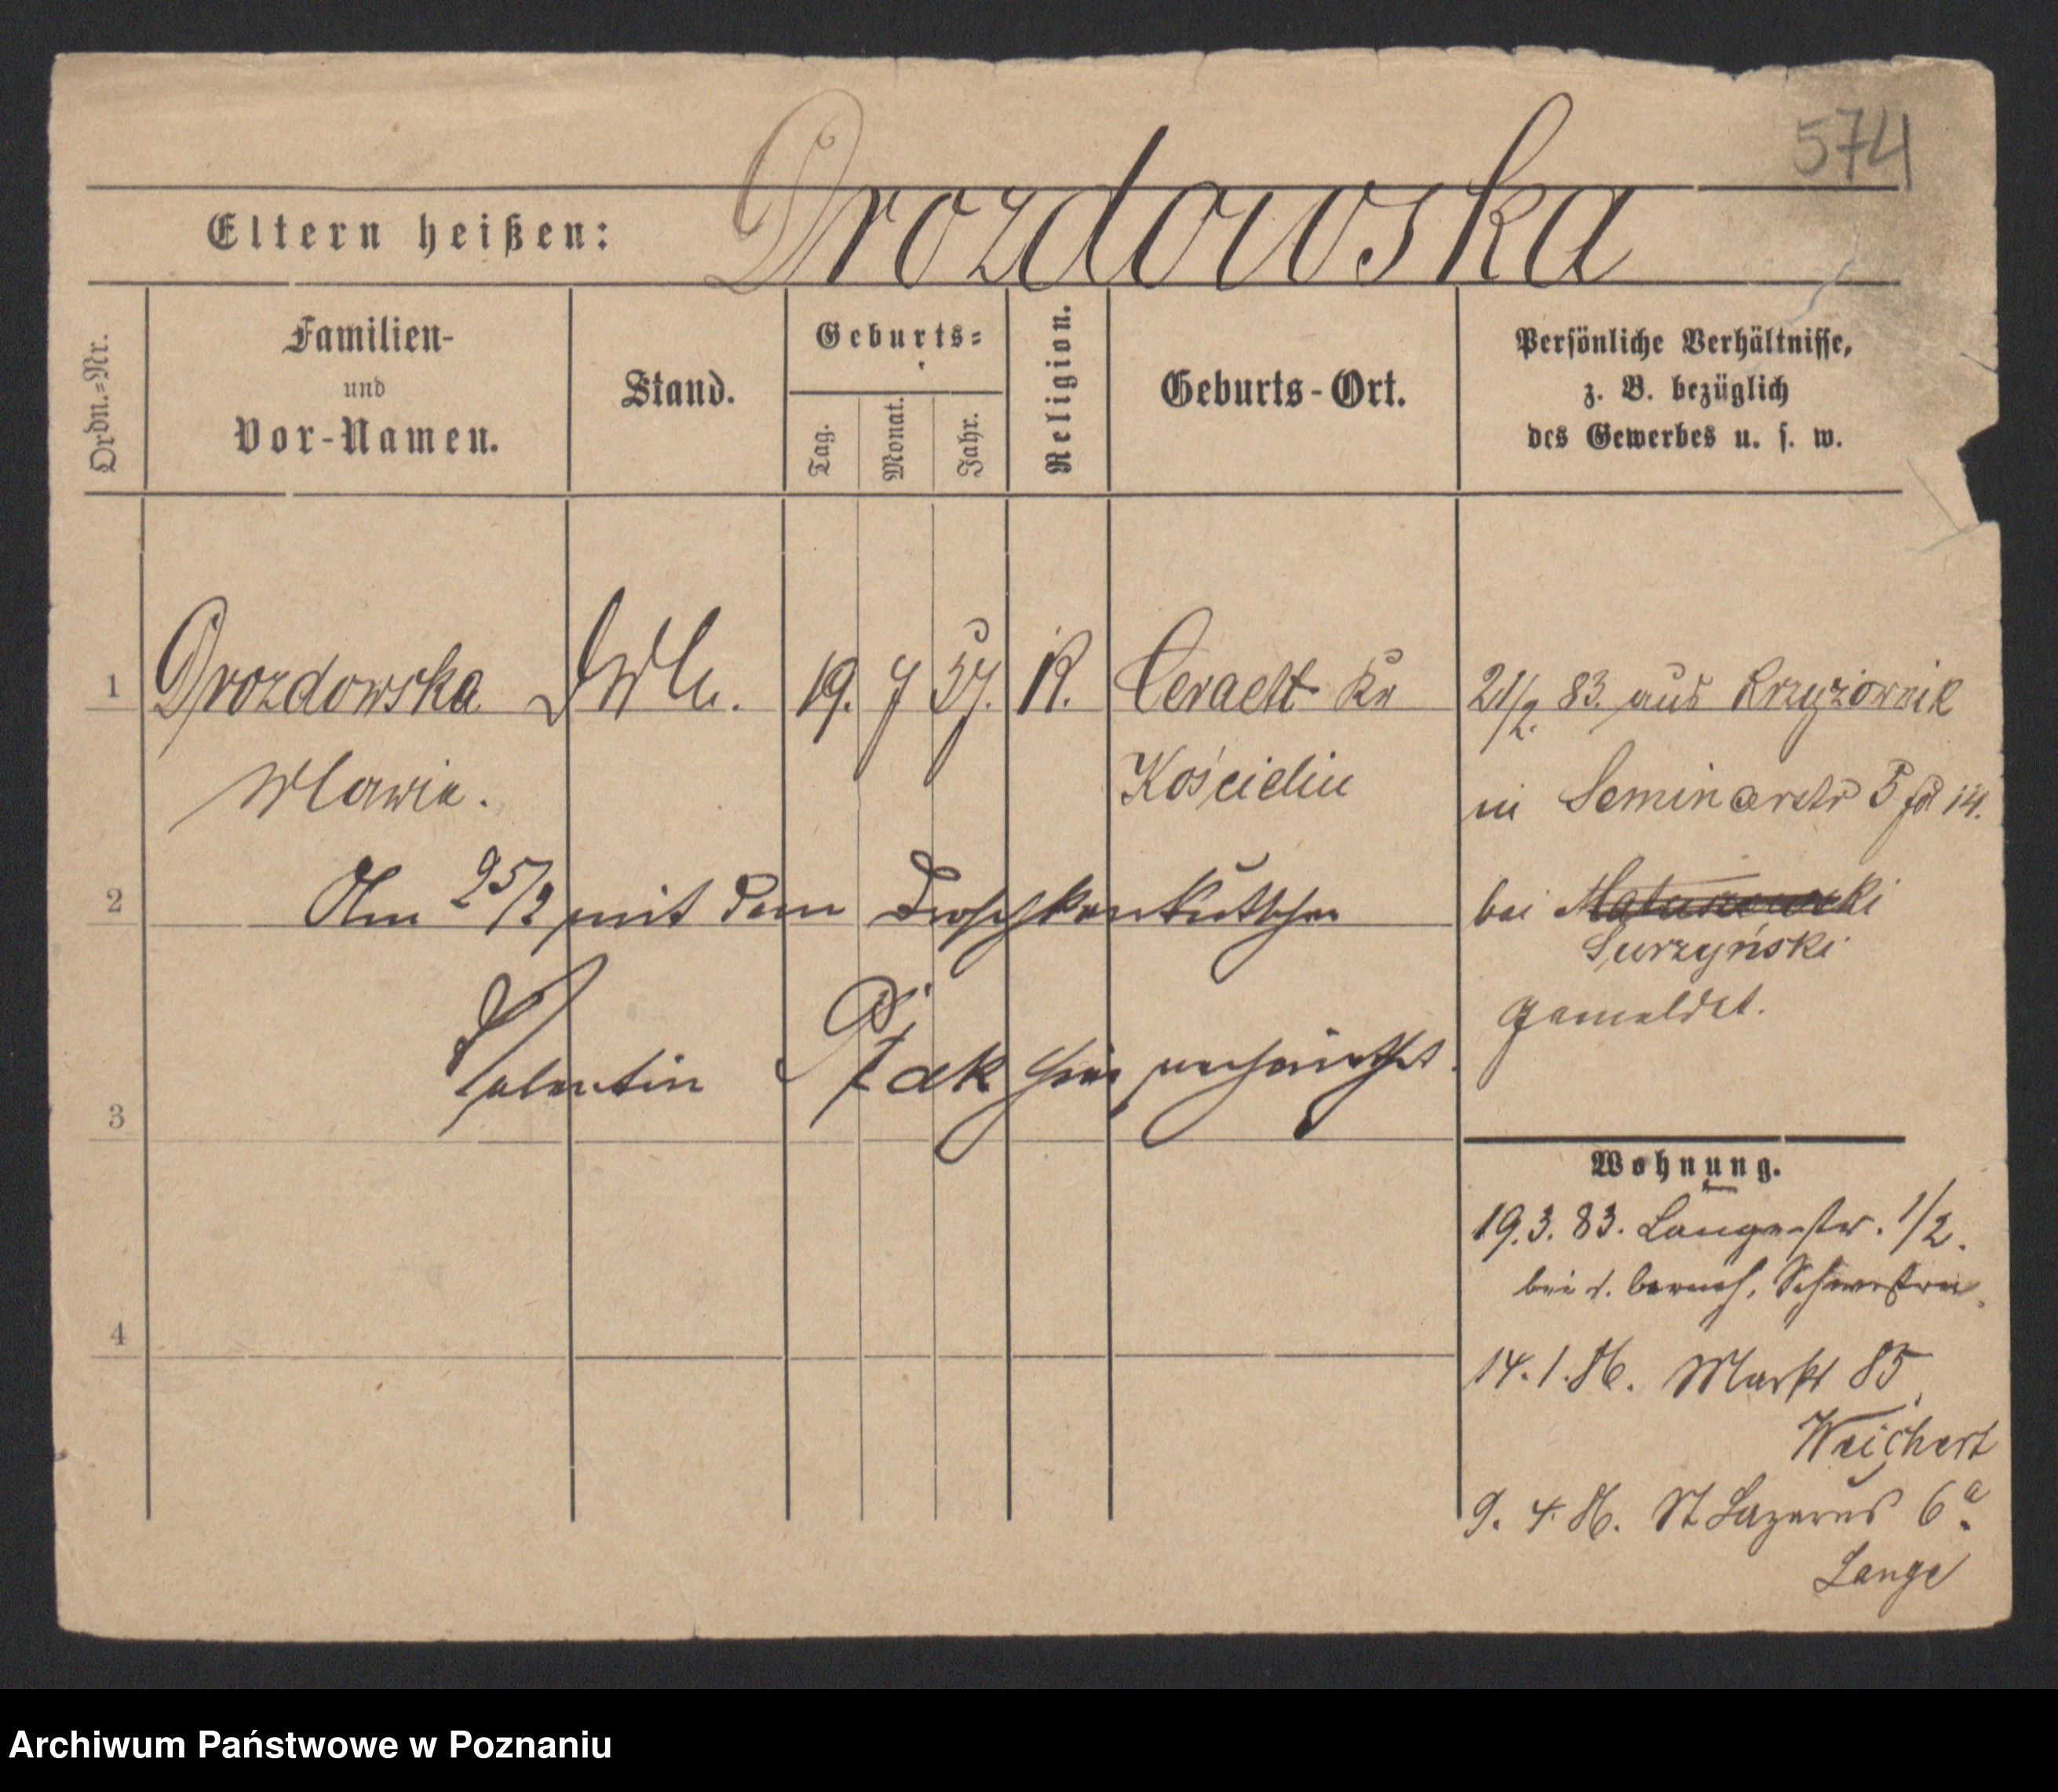 574
Drozdowska
Eltern heißen:
Ordn.=Nr.
Familien-
und
Vor-Namen.
Stand.
Geburts=
Tag.
Monat.
Jahr.
Religion.
Geburts-Ort.
Persönliche Verhältnisse,
z. B. bezüglich
des Gewerbes u. s. w.
1 Drozdowska 19. 7 57. R. Kr 21/2. 83. aus Krzyżownik
Maria. in Seminarstr 5 14.
2 Am 25/2 mit dem Droschkenkutscher bei
Surzyński
Valentin Ptak hier verheirathet. gemeldet.
3
Wohnung.
19.3.83. Langestr. 1/2.
bei d. barmh. Schwestern.
4
14.1.86. Markt 85,
Weichert
9. 4. 86. St Lazarus 6a.
Lange
Archiwum Państwowe w Poznaniu